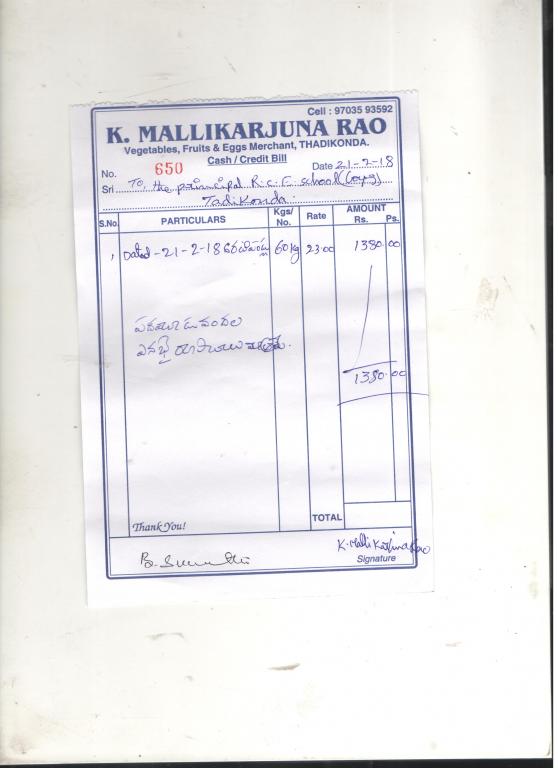 Cell : 97035 93592
K. MALLIKARJUNA RAO
Vegetables, Fruits & Eggs Merchant, THADIKONDA.
Cash / Credit Bill
No. 650 Date 21-2-18
Sri To, the principal R.c.E school (Boys)
Tadikonda.
S.No. PARTICULARS Kgs/ No. Rate AMOUNT Rs. Ps.
1 Dated - 21-2-18 60 kg 23.00 1380 00
పదమూడు వందల
ఎనభై రూపాయలు మాత్రమే.
1380.00
TOTAL
Thank You!
K. Malli Karjuna Rao
Signature